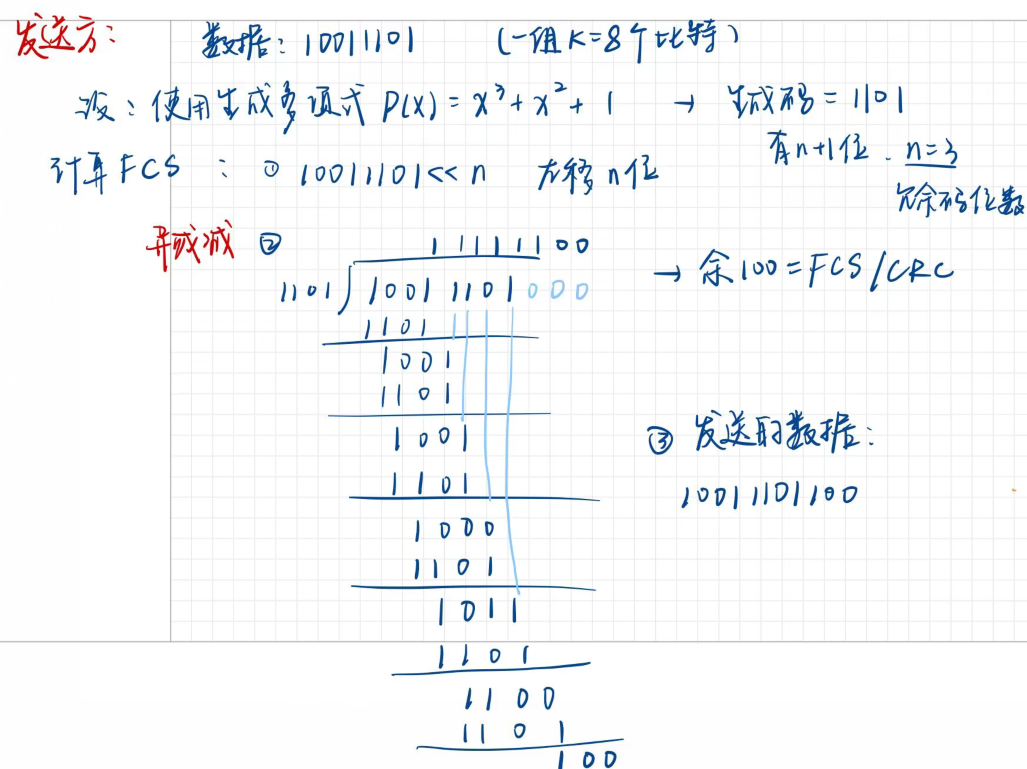 发送方:
数据: 10011101 (一组K=8个比特)
设: 使用生成多项式 P(X) = x³+x²+1 → 生成码=1101
有n+1位. n=3
冗余码位数
计算FCS : ① 10011101<<n 左移n位
异或减 ②
11111100
1101 10011101000
→ 余100=FCS/CRC
1101
1001
1101
1001
1101
1000
1101
1011
1101
1100
1101
100
③ 发送的数据:
10011101100